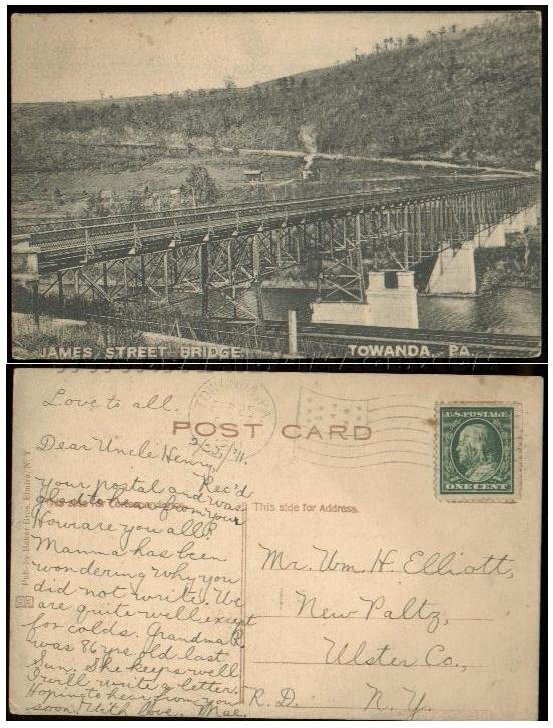 JAMES STREET BRIDGE. TOWANDA, PA.
Love to all.
TOWANDA PA
POST CARD
U.S. POSTAGE
ONE CENT
2/25/11.
Dear Uncle Henry,
Rec'd
your postal and was
glad to hear from you
This side for
How are you all?
Mamma has been
wondering why you
did not write. We
are quite well except
for colds. Grandma R.
was 86 yrs old last
Sun. She keeps well
I will write a letter.
Hoping to hear from you
soon. With love. Mae.
This side for Address.
Mr. Wm. H. Elliott,
New Paltz,
Ulster Co.,
R. D. N. Y.
Pub. by Baker Bros. Elmira, N. Y.